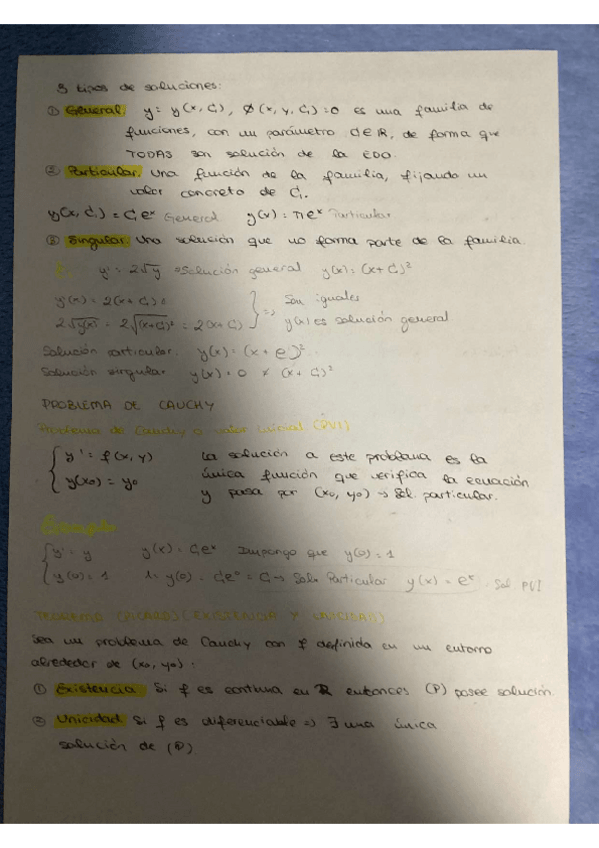 3 tipos de soluciones:
① General. y = y(x, C₁), Ø(x, y, C₁) = 0 es una familia de
funciones, con un parámetro C₁∈ℝ, de forma que
TODAS son solución de la EDO.
② Particular. Una función de la familia, fijando un
valor concreto de C₁.
y(x, C₁) = C₁eˣ General y(x) = πeˣ Particular
③ Singular. Una solución que no forma parte de la familia.
y' = 2√y Solución general y(x) = (x + C₁)²
y'(x) = 2(x + C₁)
2√y(x) = 2√(x+C₁)² = 2(x + C₁) } => Son iguales
y(x) es solución general
Solución particular. y(x) = (x + e)²
Solución singular y(x) = 0 ≠ (x + C₁)²
PROBLEMA DE CAUCHY
Problema de Cauchy o valor inicial (PVI)
{ y' = f(x, y) La solución a este problema es la
y(x₀) = y₀ única función que verifica la ecuación
y pasa por (x₀, y₀) → Sol. particular.
Ejemplo
{ y' = y y(x) = C₁eˣ Impongo que y(0) = 1
y(0) = 1 1 = y(0) = C₁e⁰ = C₁ → Soln Particular y(x) = eˣ. Sol PVI
TEOREMA (PICARD) (EXISTENCIA Y UNICIDAD)
Sea un problema de Cauchy con f definida en un entorno
alrededor de (x₀, y₀):
① Existencia Si f es continua en ℝ entonces (P) posee solución.
② Unicidad Si f es diferenciable => ∃ una única
solución de (P)